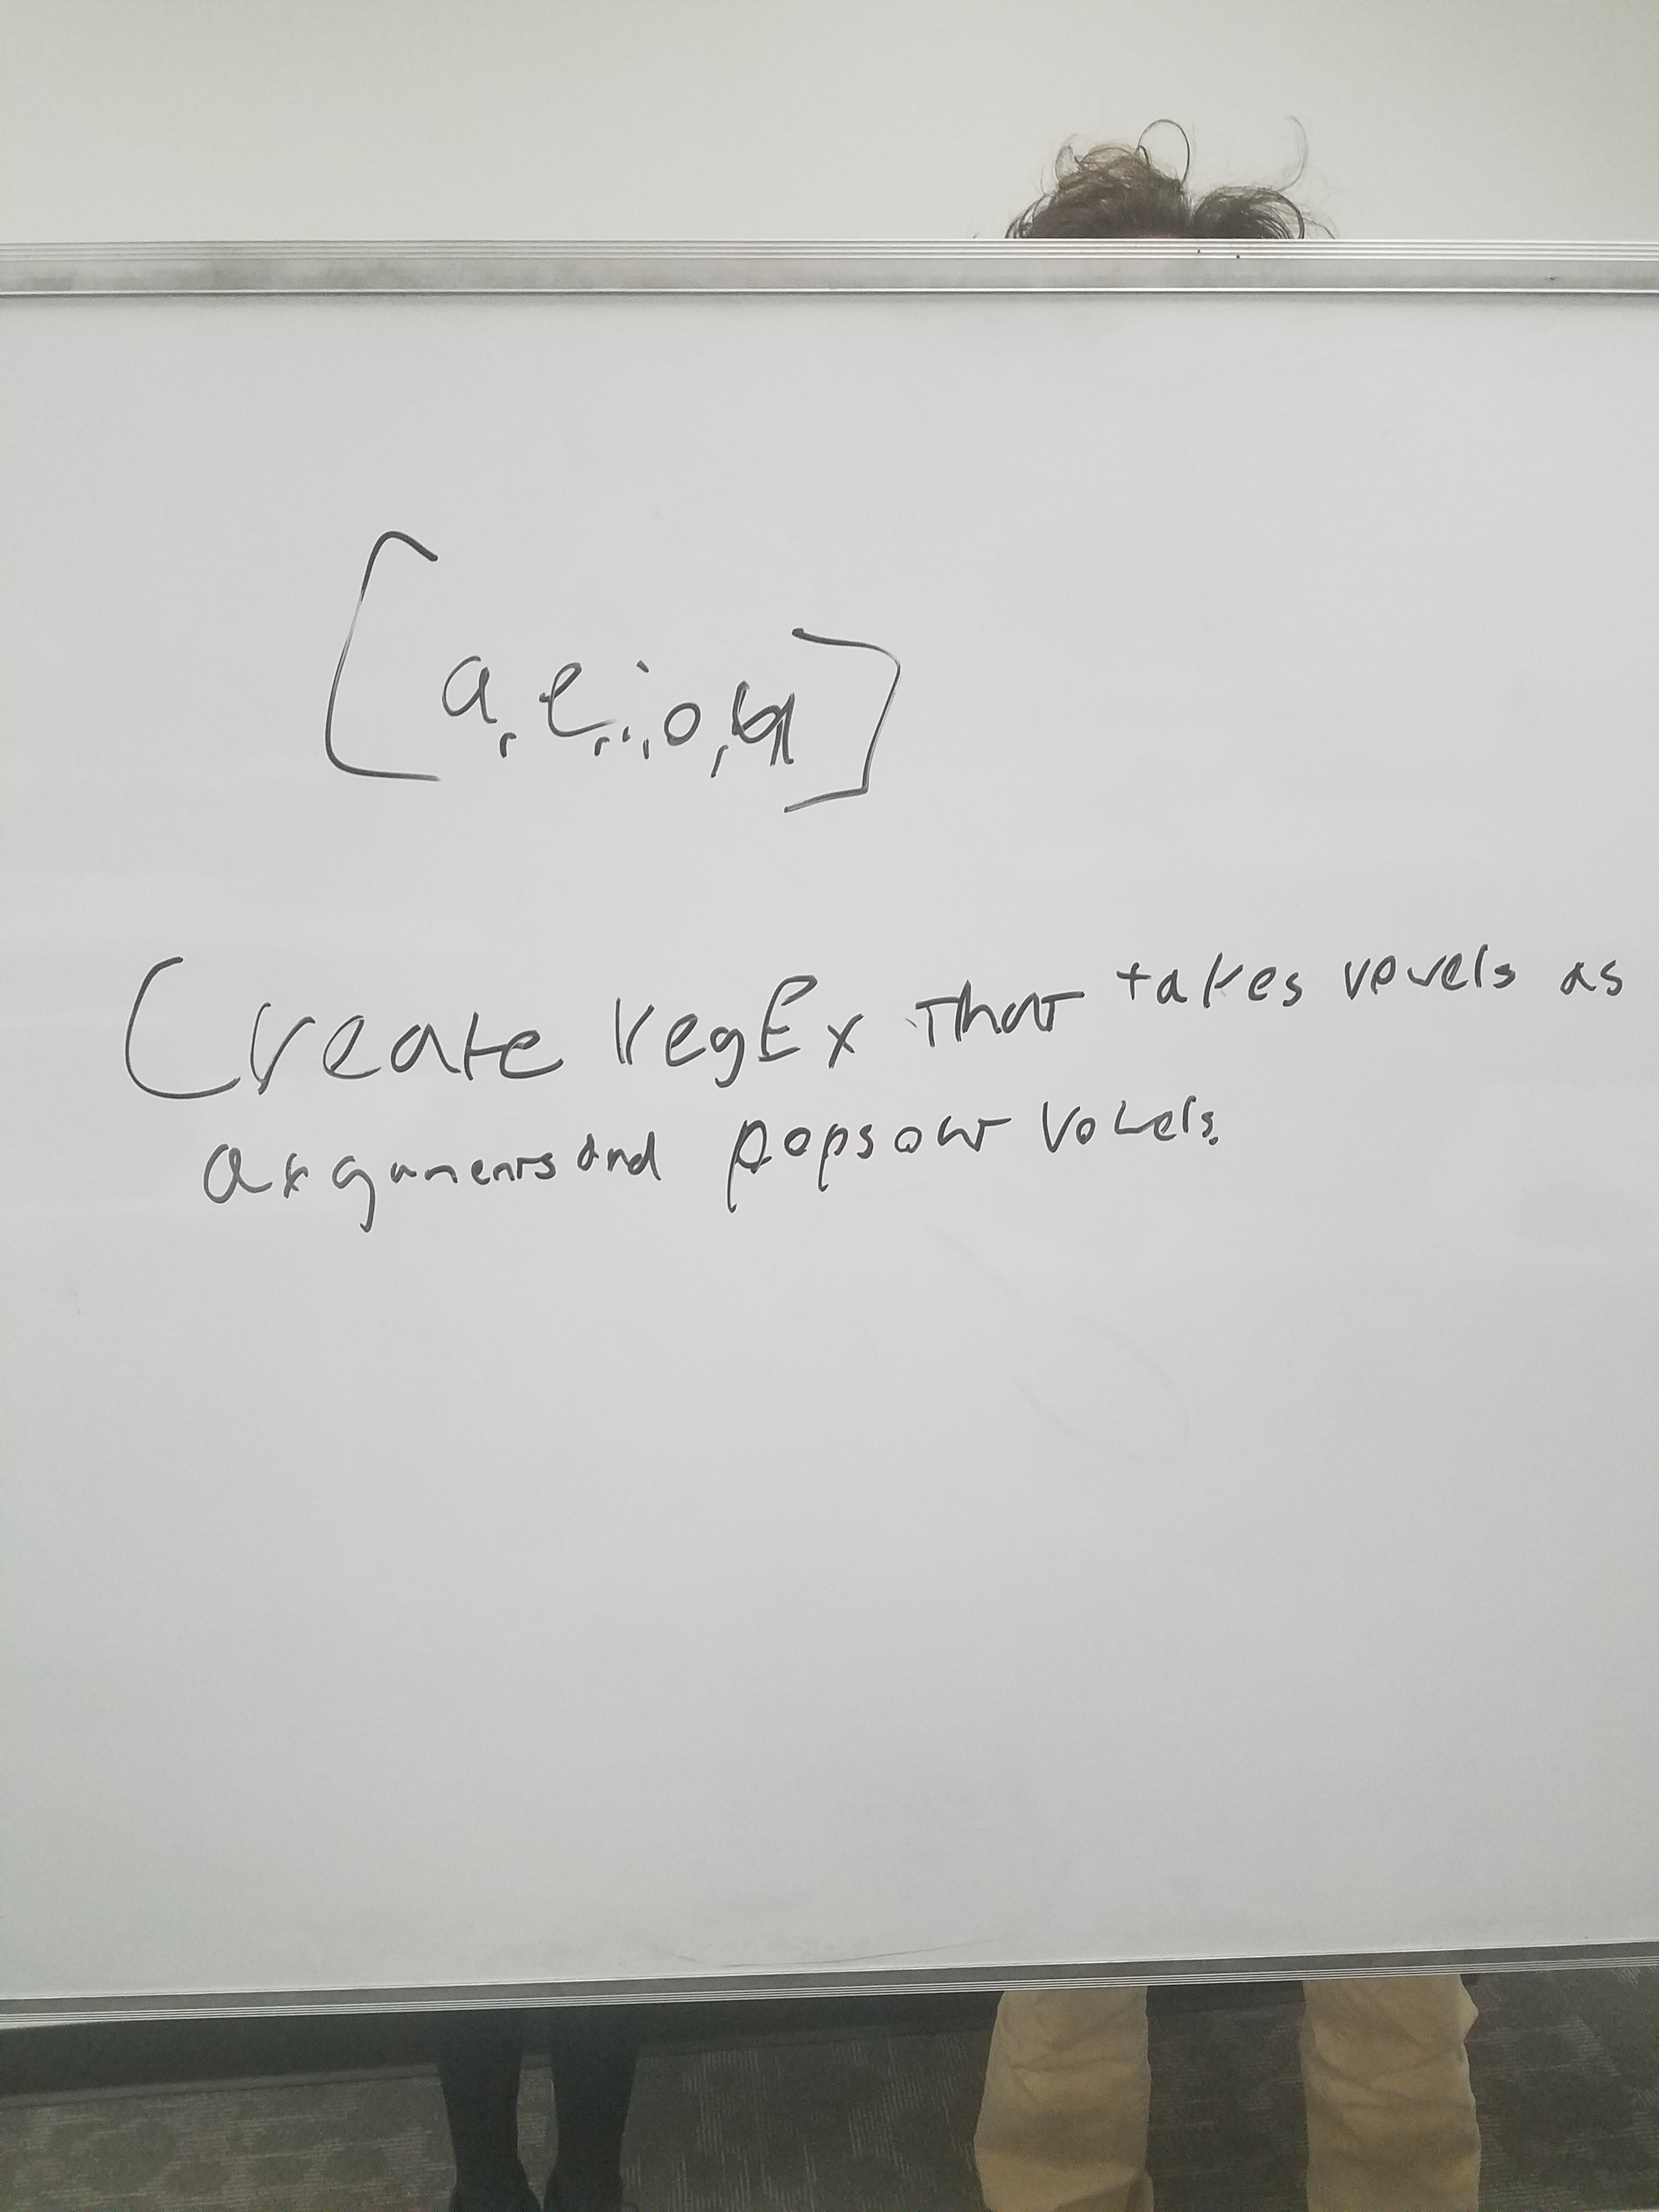 [a, e, i, o, u]
Create regEx that takes vowels as
arguments and pops out vowels.